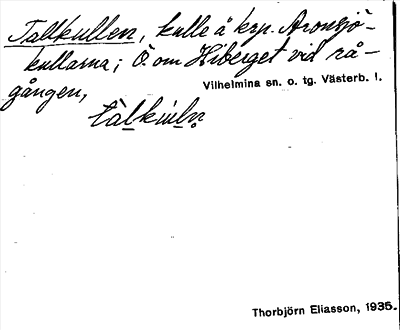 Tallkullen, kulle å krp. Aronsjö-
kullarna; Ö. om Hiberget vid rå-
gången,
Vilhelmina sn. o. tg. Västerb. l.
Thorbjörn Eliasson, 1935.